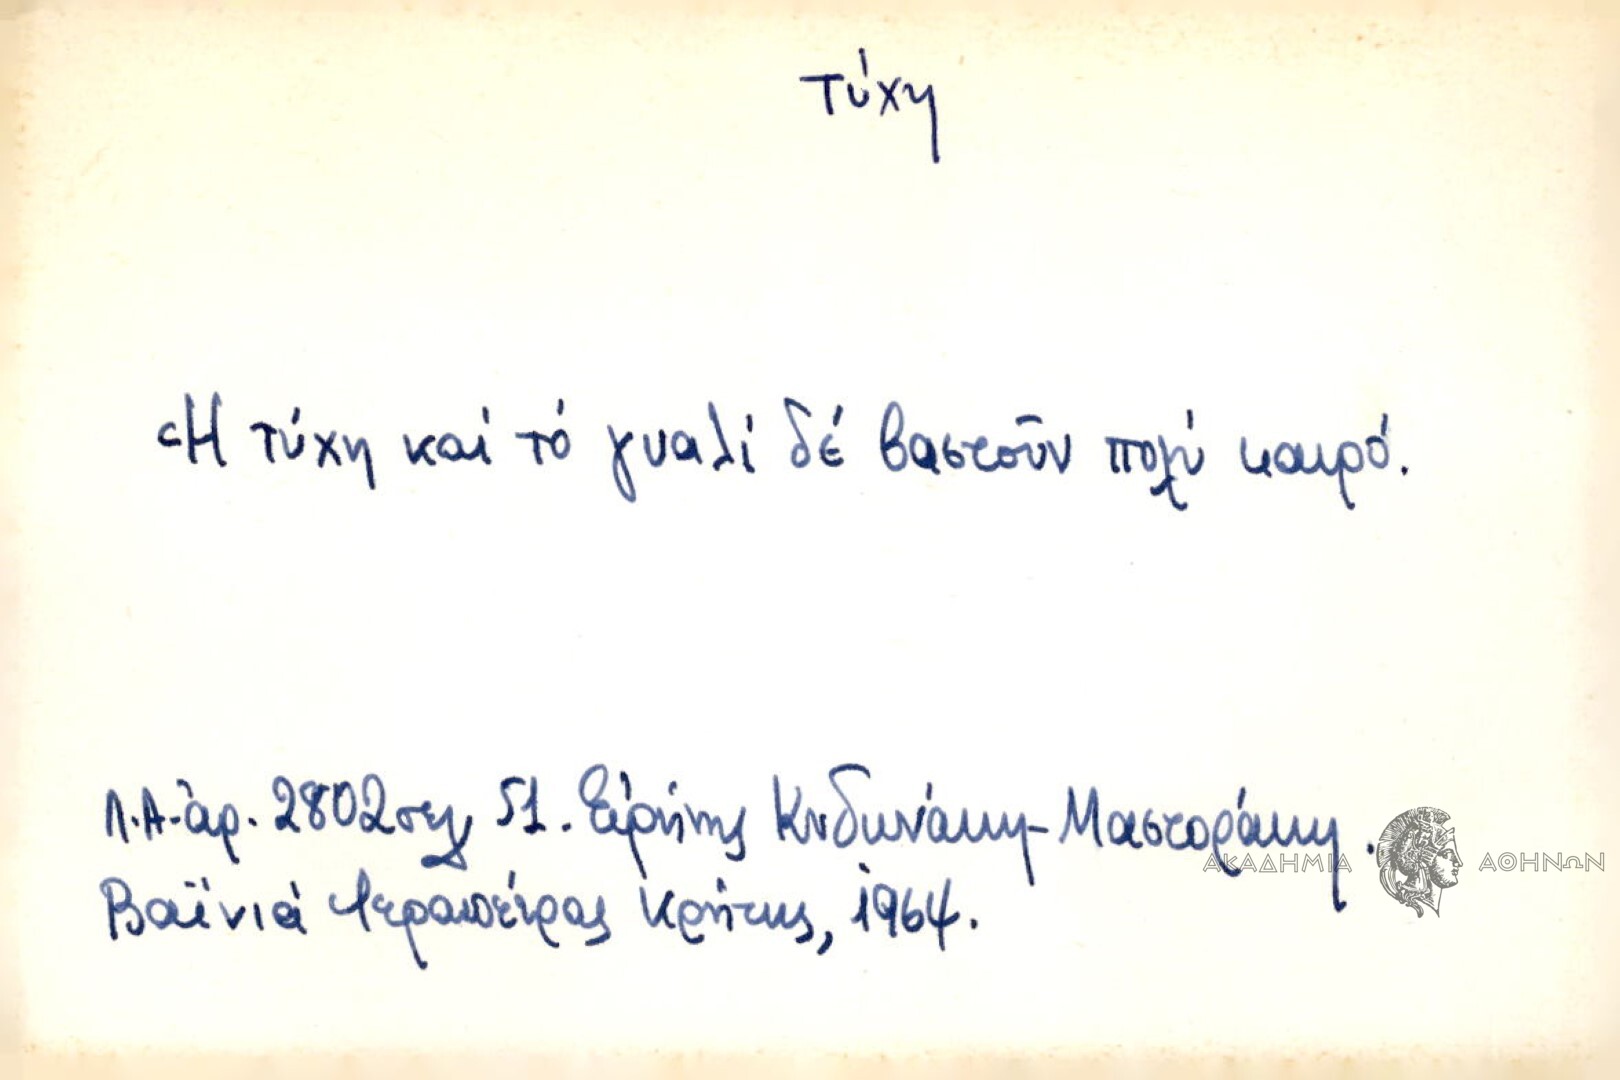 τύχη
Ἡ τύχη καί τό γυαλί δέ βαστοῦν πολύ καιρό.
Λ.Α. ἀρ. 2802 σελ 51. Εἰρήνης Κνδυνάκη-Μαστοράκη.
Βαϊνιά Ἱεραπέτρας Κρήτης, 1964.
ΑΚΑΔΗΜΙΑ ΑΘΗΝΩΝ